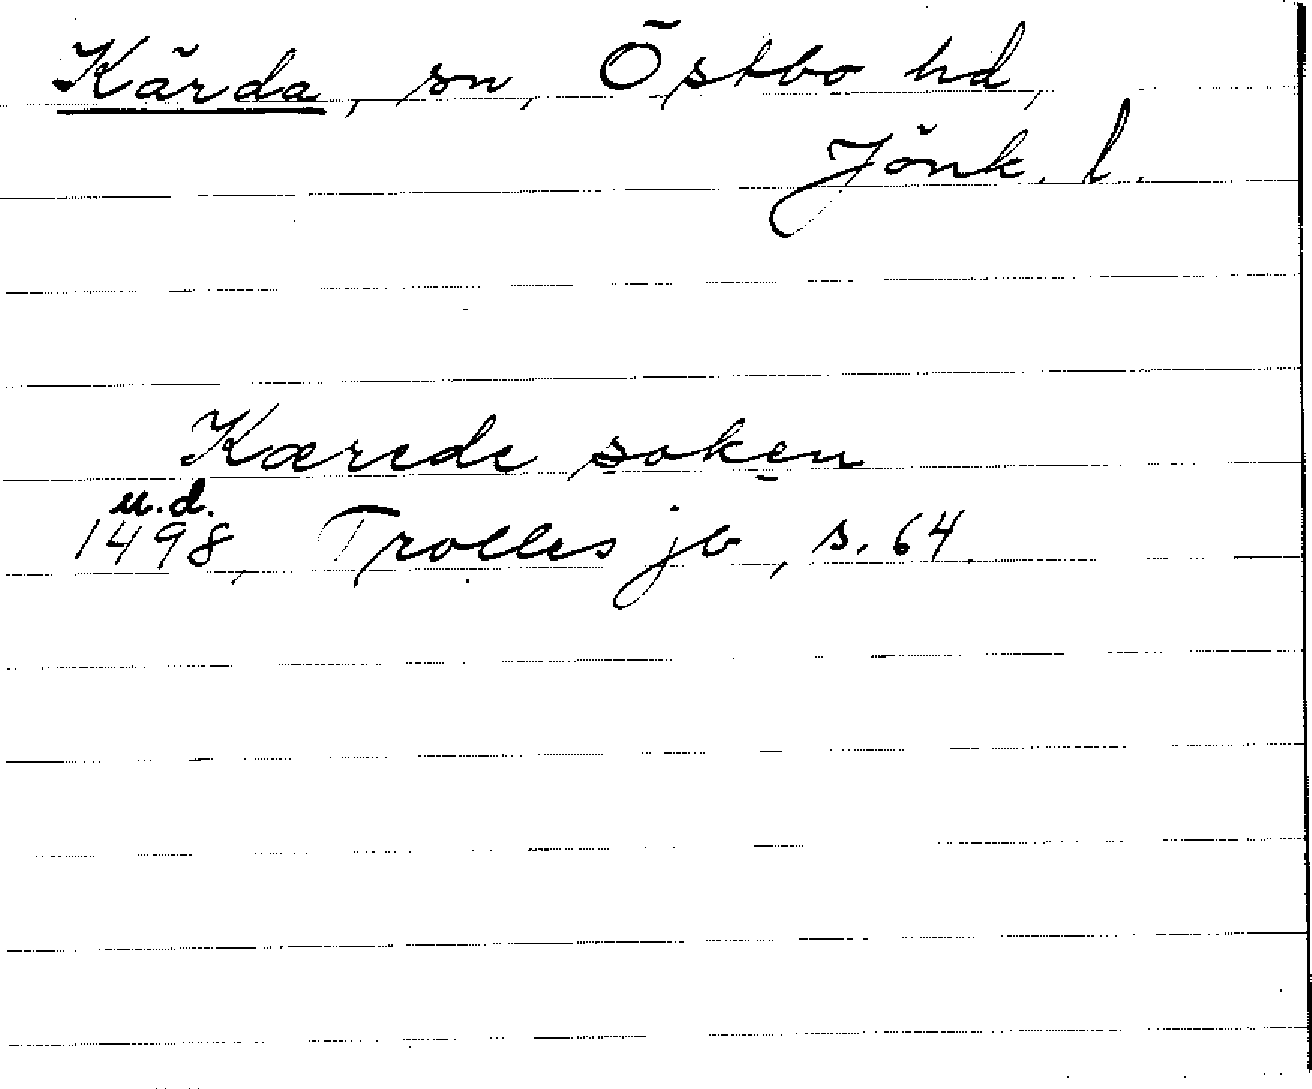 Kärda, sn, Östbo hd,
Jönk. l.
Kærede soken
u.d.
1498, Trolles jb, s. 64.